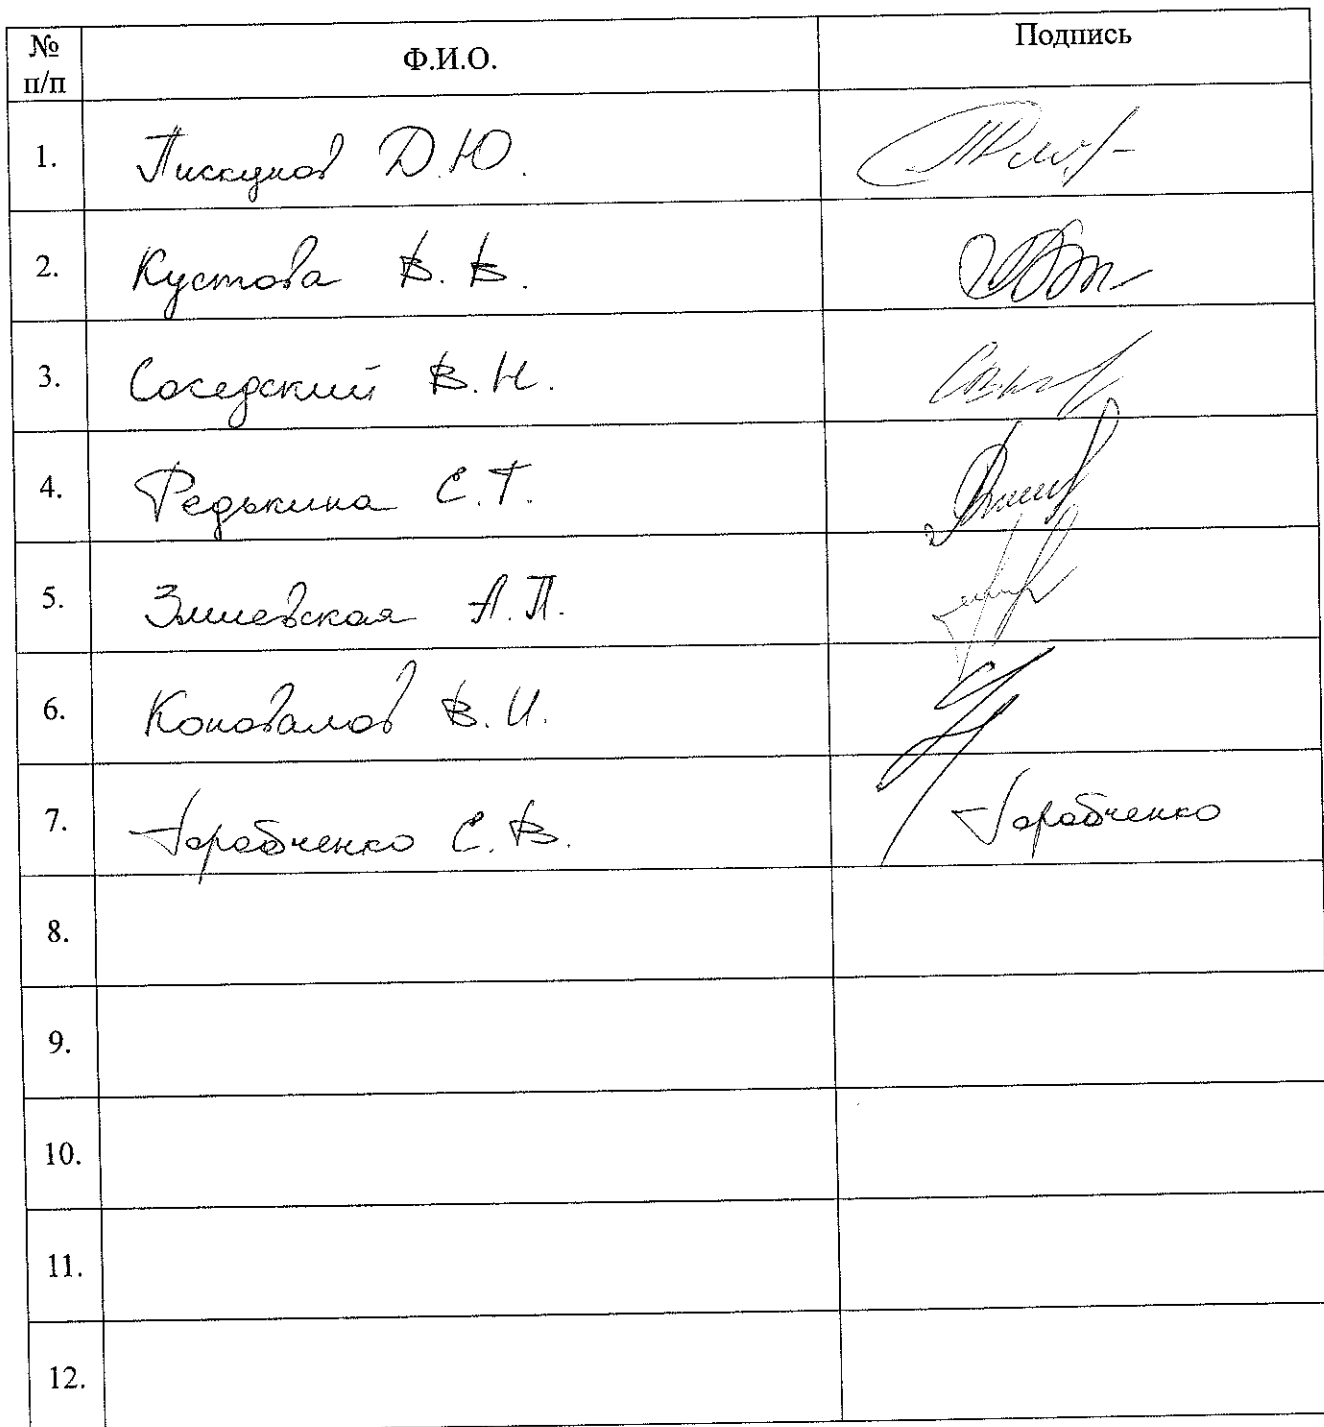 № п/п Ф.И.О. Подпись
1. Пискунов Д.Ю.
2. Кустова В. В.
3. Соседский В.Н.
4. Редькина С.Т.
5. Змиевская А.П.
6. Коновалов В.И.
7. С.В.
8.
9.
10.
11.
12.